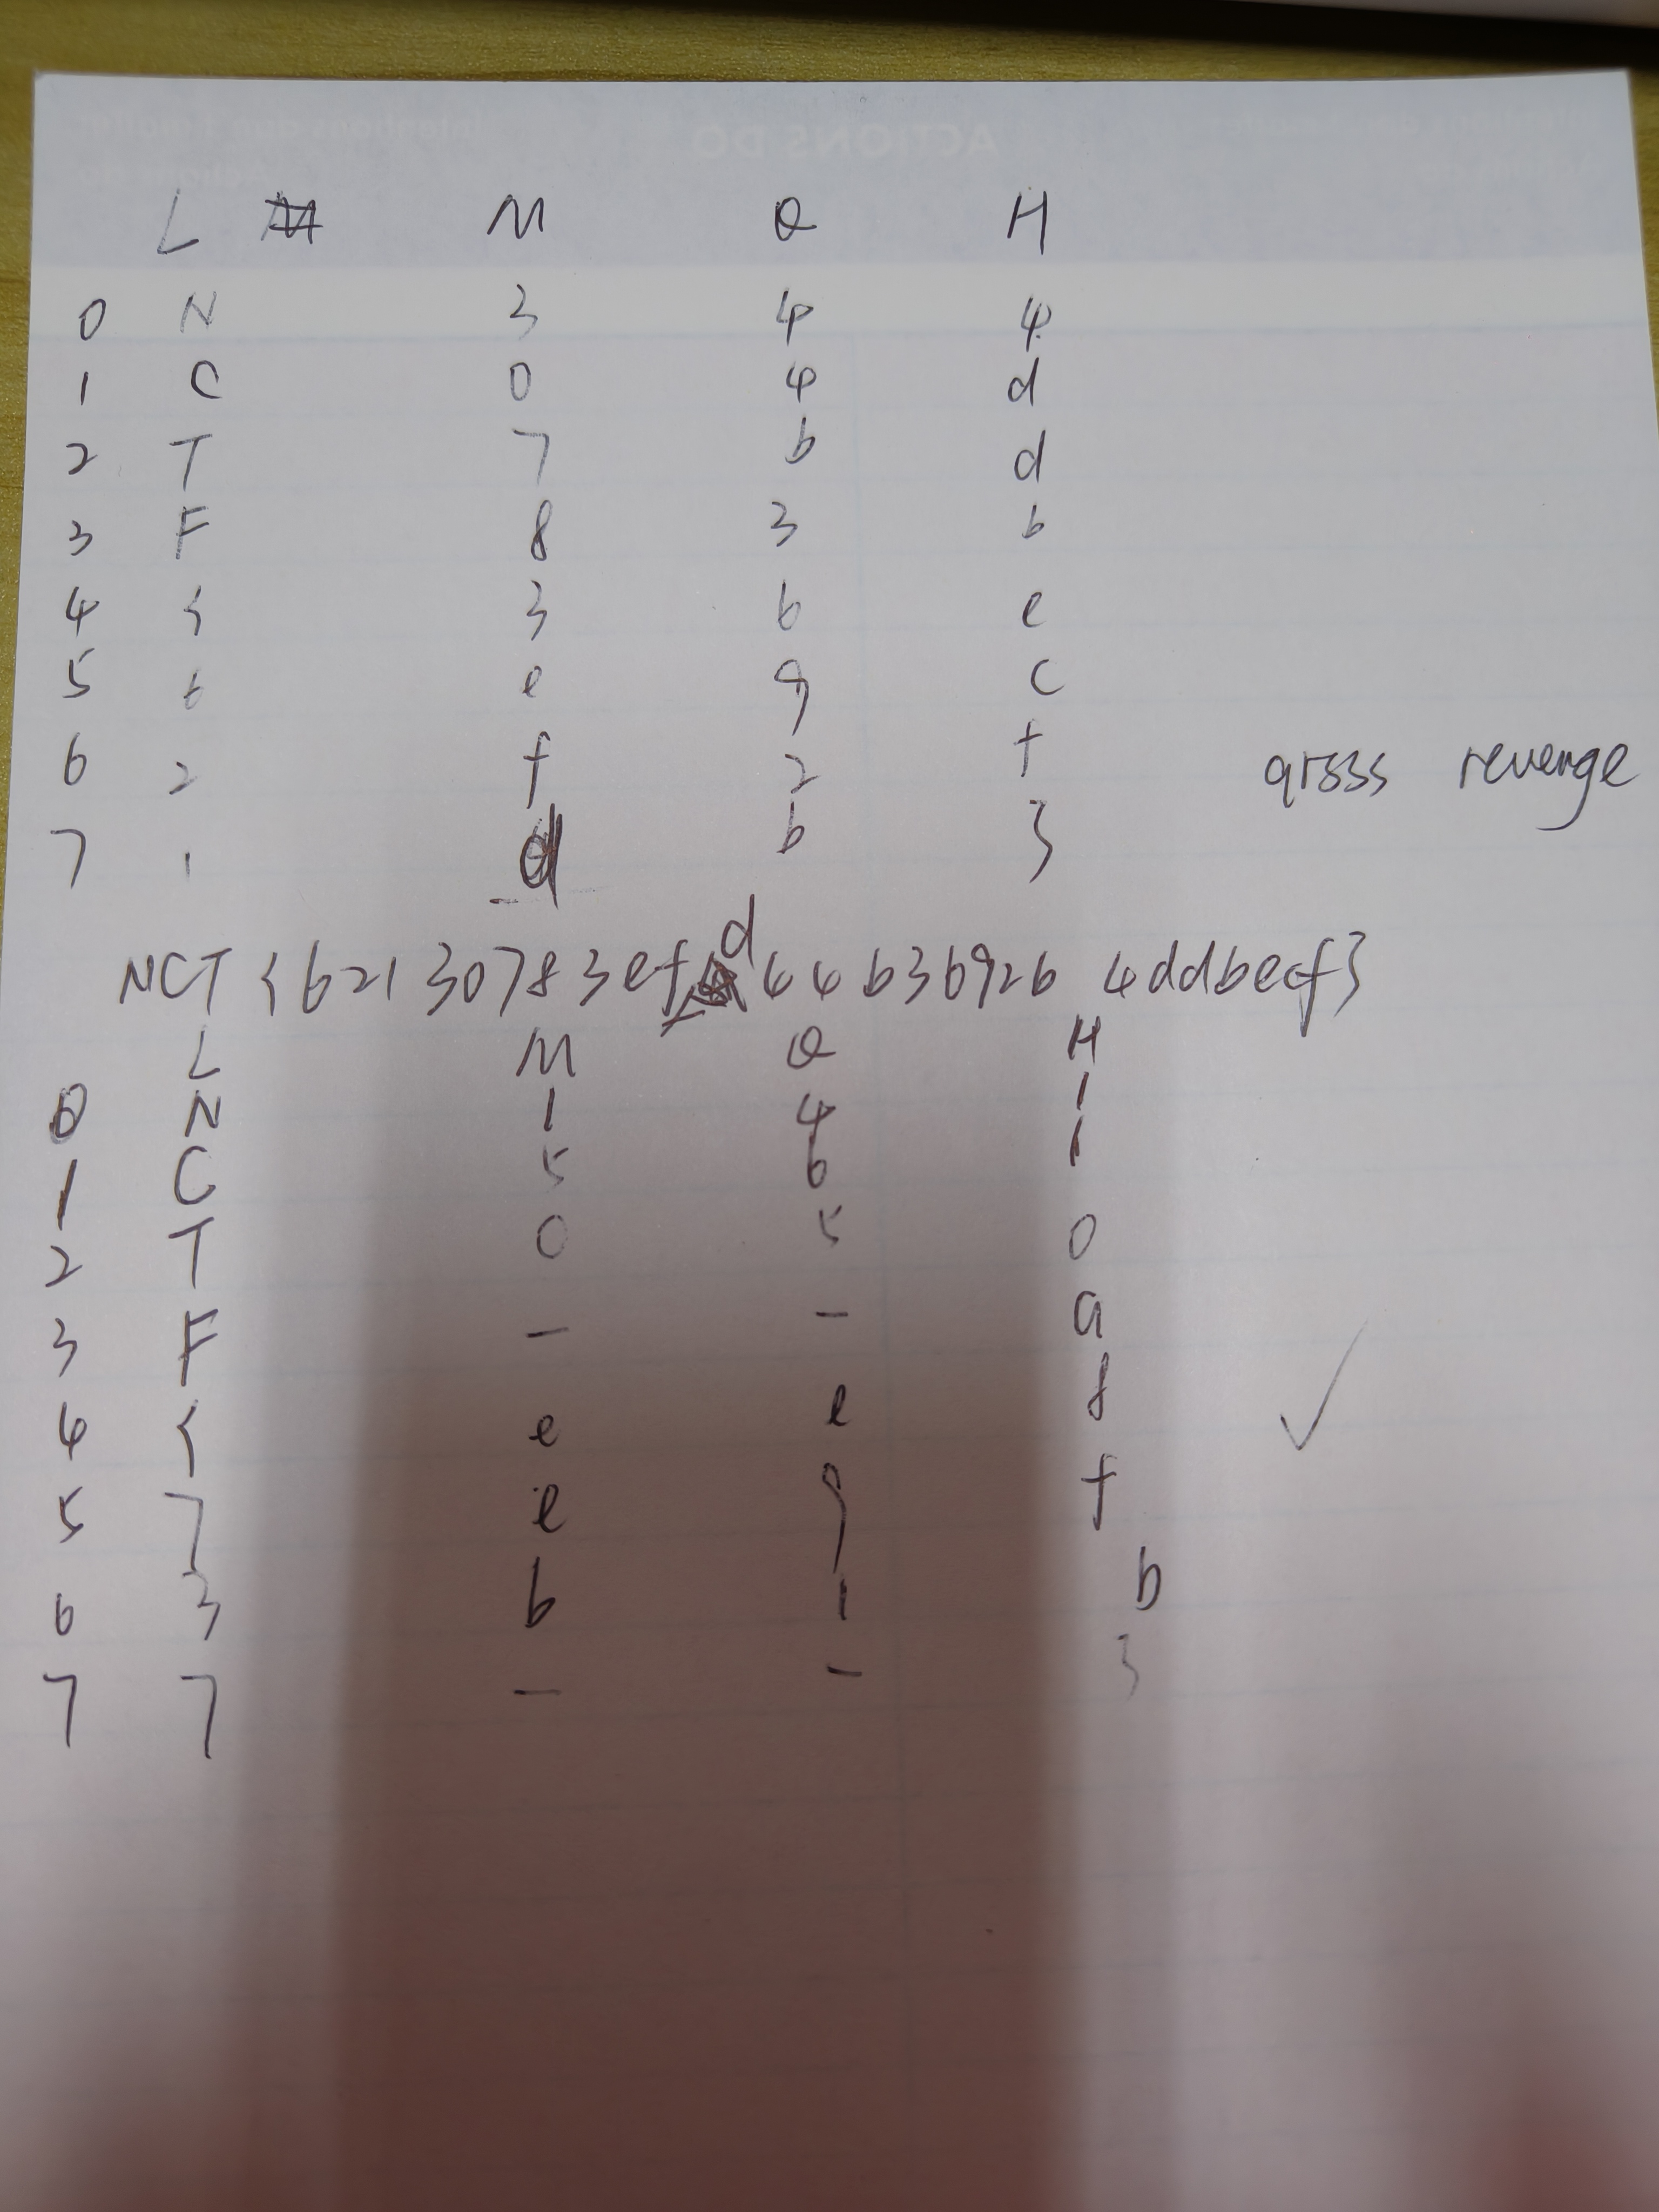 L M Q H
0 N 3 4 4
1 C 0 4 d
2 T 7 b d
3 F 8 3 b
4 { 3 6 e
5 6 e 9 c
6 2 f 2 f qrsss revenge
7 1 d b }
NCT { 621 30783efd 44b3b92b 4ddbecf}
L M Q H
0 N 1 4 1
1 C 5 6 1
2 T 0 5 0
3 F - - a
4 { e e 8
5 7 e 9 f
6 3 b 1 b
7 7 - - }
ACTIONS DO